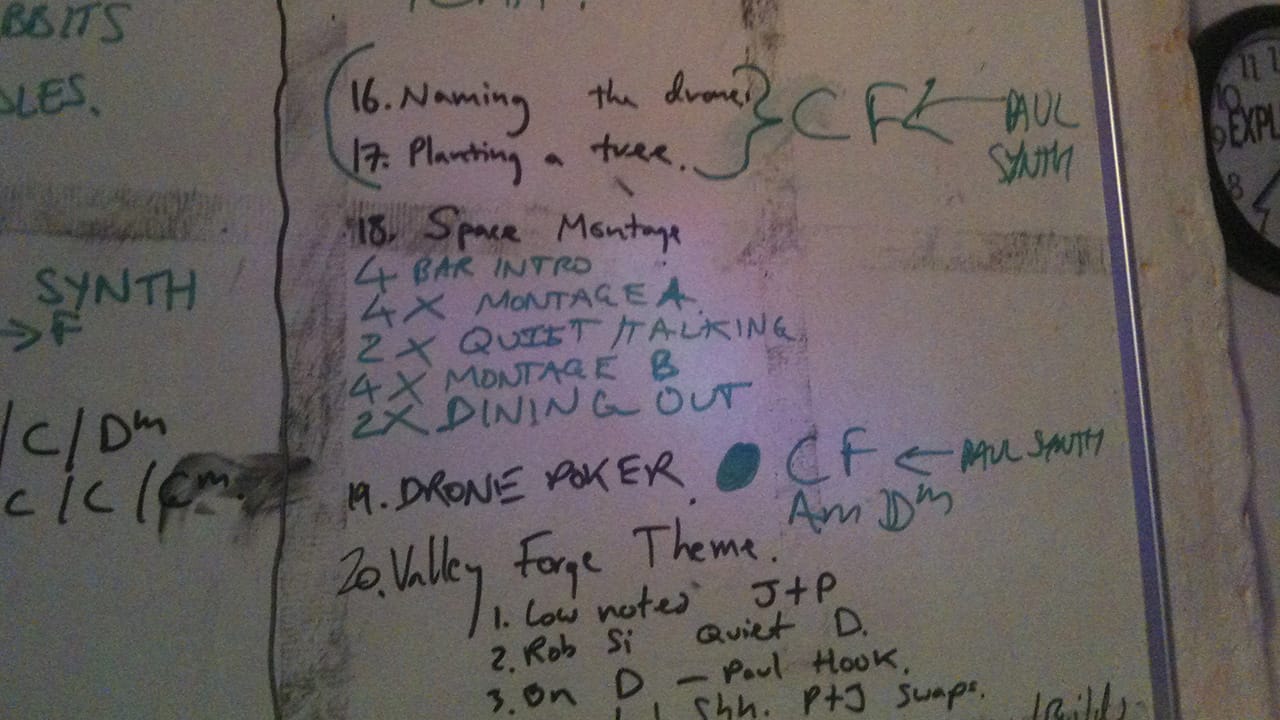 BBITS
DLES.
SYNTH
→ F
/ C / Dm
C / C / Cm.
16. Naming the drones } C F ← PAUL SYNTH
17. Planting a tree.
18. Space Montage
4 BAR INTRO
4 X MONTAGE A
2 X QUIET /TALKING
4 X MONTAGE B
2X DINING OUT
19. DRONE POKER. C F ← PAUL SYNTH
Am Dm
20. Valley Forge Theme.
1. Low notes J+P
2. Rob Si Quiet D.
3. On D — Paul Hook.
Shh. P+J swaps.
11
10
9 EXPL
8